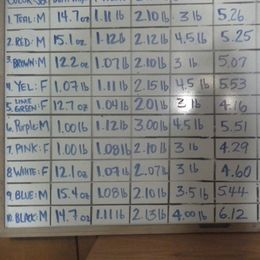 1. TEAL: M 14.7 oz 1.11 lb 2.10 lb 3 lb 5.26
2. RED: M 15.1 oz 1.12 lb 2.12 lb 4.5 lb 5.25
3. BROWN: M 12.2 oz 1.07 lb 2.10 lb 3 lb 5.07
4. YEL: F 1.07 lb 1.11 lb 2.15 lb 4.5 lb 5.53
5. LIME GREEN: F 12.7 oz 1.04 lb 2.01 lb 3 lb 4.16
6. Purple: M 1.00 lb 1.12 lb 3.00 lb 4.5 lb 5.51
7. PINK: F 1.00 lb 1.08 lb 2.10 lb 3 lb 4.29
8. WHITE: F 12.1 oz 1.07 lb 2.07 lb 3 lb 4.60
9. BLUE: M 15.4 oz 1.08 lb 2.10 lb 3.5 lb 5.44
10. BLACK: M 14.7 oz 1.11 lb 2.13 lb 4.00 lb 6.12